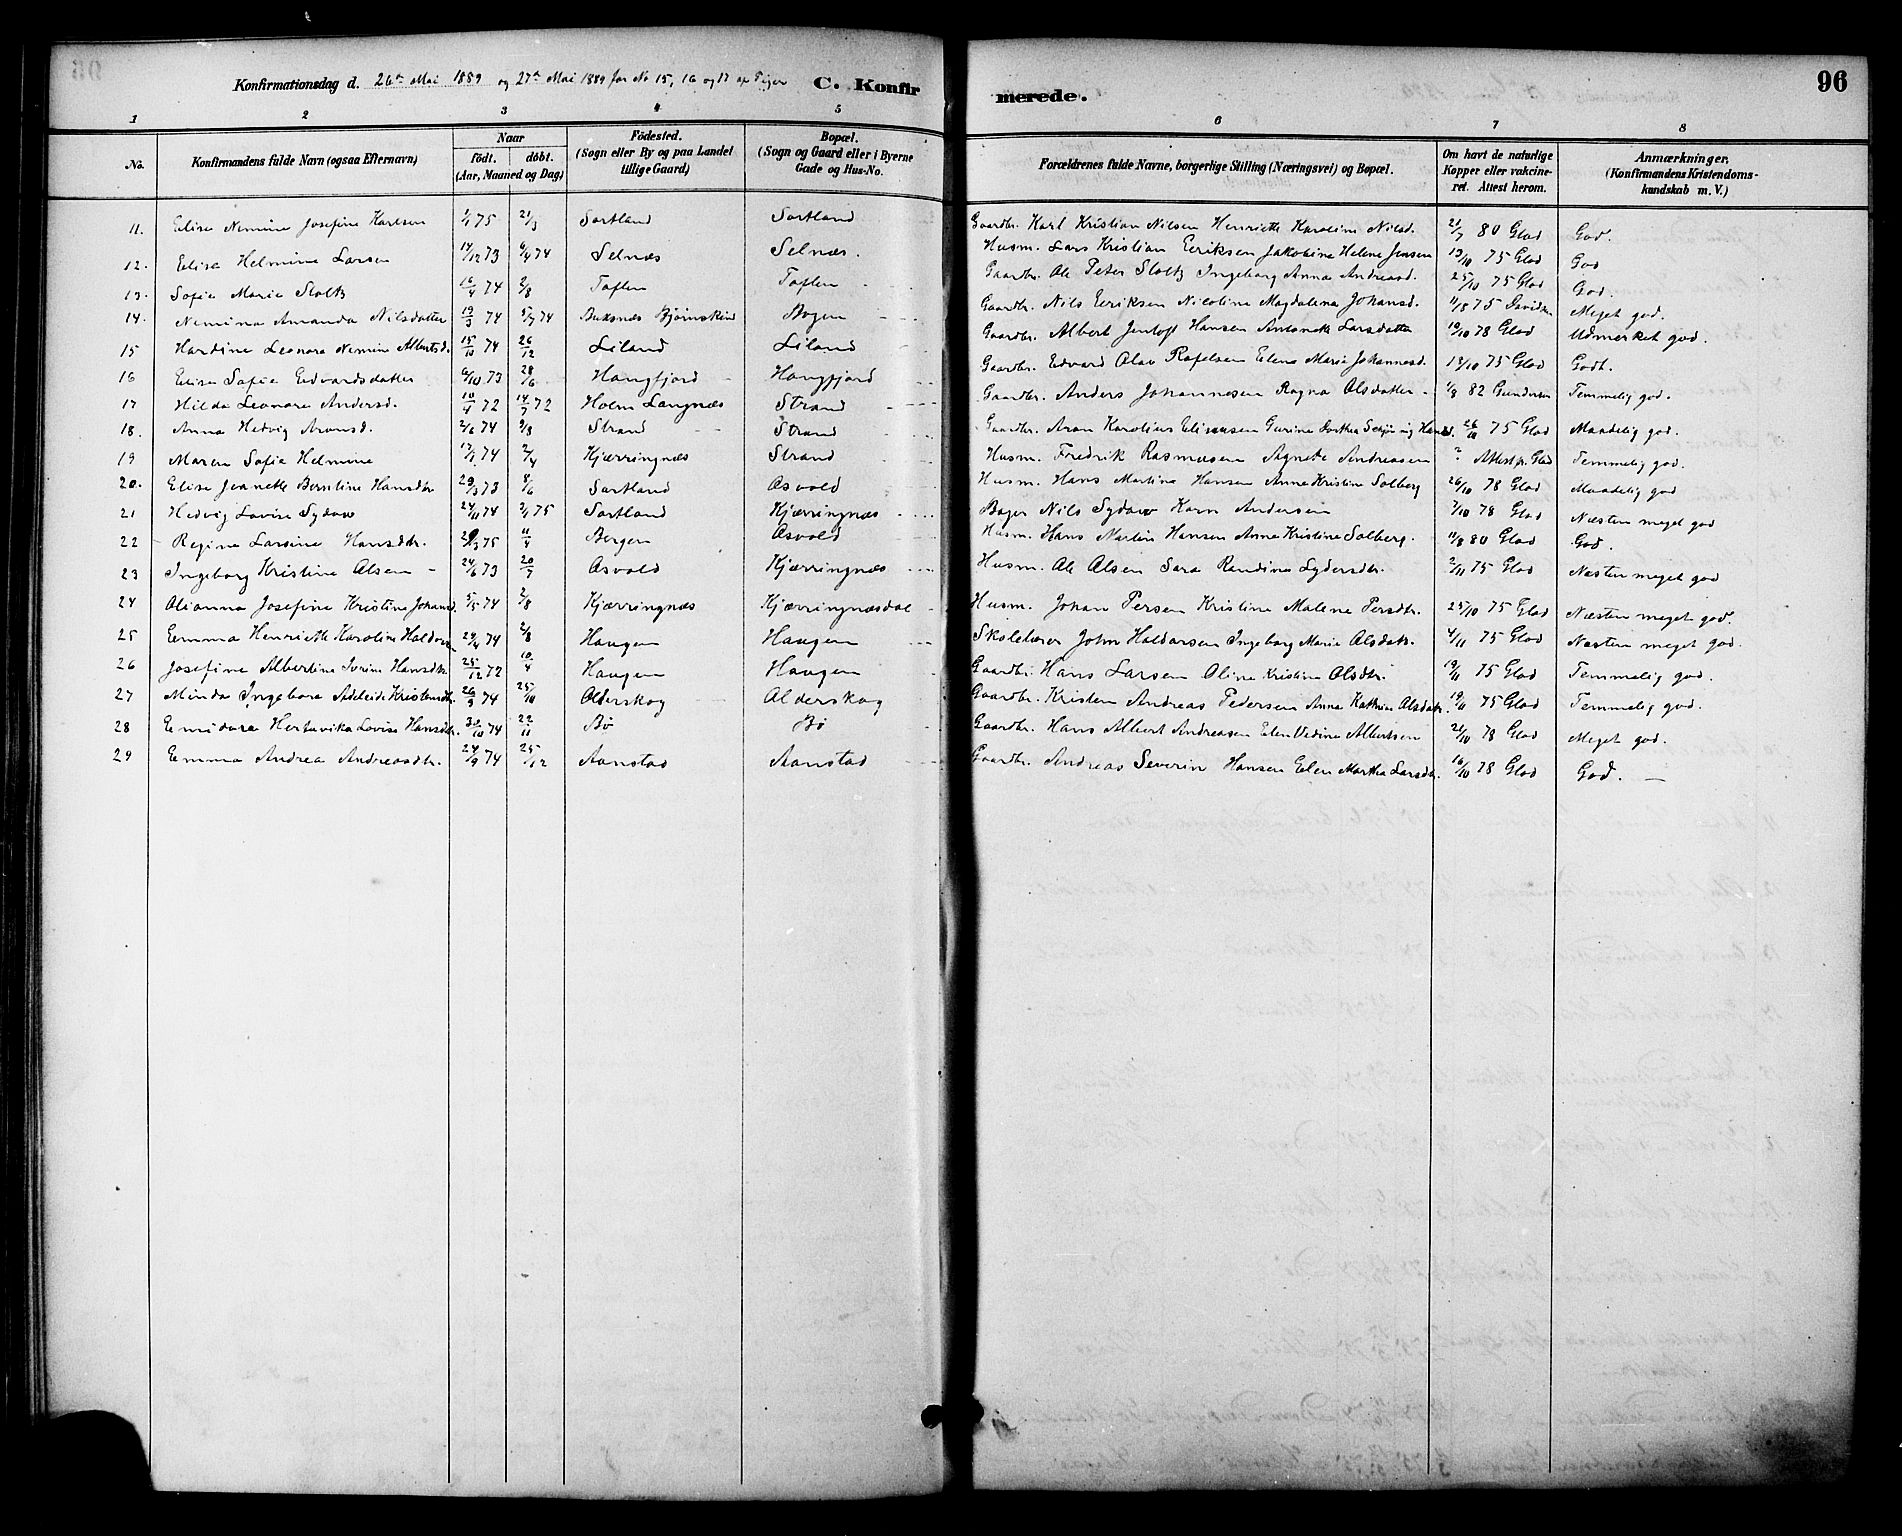 96
Konfirmationsdag d. 26de Mai 1889 og 27de Mai 1889 for No 15, 16 og 17 af Piger C. Konfir merede.
1 2 3 4 5 6 7 8
No. Konfirmandens fulde Navn (ogsaa Efternavn) Naar födt. döbt. (Aar, Maaned og Dag) Födested. (Sogn eller By og paa Landet tillige Gaard) Bopæl. (Sogn og Gaard eller i Byerne Gade og Hus-No. Forældrenes fulde Navne, borgerlige Stilling (Næringsvei) og Bopæl. Om havt de naturlige Kopper eller vakcineret. Attest herom. Anmærkninger. (Konfirmandens Kristendomskundskab m. V.)
11. Elise Nemine Josefine Karlsen 1/1 75 21/3 Sortland Sortland Gaardbr. Karl Kristian Nilsen Henriette Karoline Nilsd. 21/7 80 Glad God.
12. Elisa Helmine Larsen 14/12 73 6/4 74 Selnæs Selnæs. Husm. Lars Kristian Eeriksen Jakobine Helene Jensen 13/10 75 Glad God
13. Sofie Marie Stoltz 16/4 74 2/8 Toften Toften Gaardbr. Ole Peter Stoltz Ingeborg Anna Andreasd. 25/10 75 Glad God.
14. Nemina Amanda Nilsdatter 19/3 74 5/7 74 Buksnæs Bjørnskind Bogen Gaardbr. Nils Eeriksen Nicoline Magdalena Johansd. 11/8 75 Davidsen Meget god.
15 Hardine Leonora Nemine Albertsd. 15/10 74 26/12 Liland Liland Gaardbr. Albert Jentoft Hansen Antonette Larsdatter 19/10 78 Glad Udmerket god.
16 Elise Sofie Edvardsdatter 6/10 73 28/6 Hongfjord Hongfjord Gaardbr. Edvard Olav Rafelsen Elena Marie Johannesd. 13/10 75 Glad Godt.
17 Hilda Leonora Andersd. 10/4 72 14/7 72 Holm Langnæs Strand Gaardbr. Anders Johannesen Ragna Olsdatter 1/8 82 Gundersen Temmelig god.
18. Anna Hedvig Aronsd. 2/6 74 9/8 Strand Strand Gaardbr. Aron Karolius Elimsen Gurine Dorthea Schjøning Hansd. 26/10 75 Glad Maadelig god.
19 Maren Sofie Helmine 17/1 74 7/4 Kjærringnæs Strand Husm. Fredrik Rasmusen Agnete Andreasen ? Attest fr. Glad Temmelig god.
20. Elise Jeanette Berntine Hansdtr 29/3 73 8/6 Sortland Osvold Husm. Hans Martin Hansen Anne Kristine Solberg 26/10 78 Glad Maadelig god
21 Hedvig Lovise Sydow 24/11 74 2/1 75 Sortland Kjærringnæs Bager Nils Sydow Karn Andersen 7/10 78 Glad Næsten meget god
22 Regine Larsine Hansdtr. 29/3 75 11/4 Bergen Osvold Husm. Hans Martin Hansen Anne Kristine Solberg. 11/8 80 Glad God.
23 Ingeborg Kristine Olsen 24/6 73 20/7 Osvold Kjærringnæs Husm. Ole Olsen Sara Randine Lydersdtr. 2/11 75 Glad Næsten meget god
24 Olianna Josefine Kristine Johansd. 5/5 74 2/8 Kjærringnæs Kjærringnæsdal Husm. Johan Persen Kristine Malene Persdtr. 25/10 75 Glad Næsten meget god.
25 Eemma Henriette Karoline Haldors. 29/4 74 2/8 Haugen Haugen Skolelærer John Haldorsen Ingeborg Marie Olsdatr. 4/11 75 Glad Næsten meget god.
26 Josefine Albertine Ivrine Hansdtr. 25/12 72 10/4 Haugen Haugen Gaardbr. Hans Larsen Oline Kristine Olsdtr. 19/11 75 Glad Temmelig god.
27 Minda Ingebora Adeleide Kristensdtr. 26/9 74 25/10 Olderskog Alderskog Gaardbr. Kristen Andreas Pedersen Anna Kathrine Olsdatr. 19/11 75 Glad Temmelig god.
28 Eemidora Hertavika Lovise Hansdtr. 30/10 74 22/11 Bø Bø Gaardbr. Hans Albert Andreasen Elen Vedine Albertsen 21/10 78 Glad Meget god.
29 Eemma Andrea Andreasdtr. 24/9 74 25/12 Aanstad Aanstad Gaardbr. Andreas Severin Hansen Elen Martha Larsdtr. 16/10 78 Glad God.